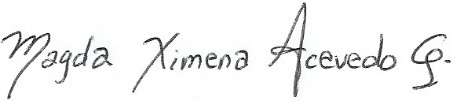 Magda Ximena Acevedo G.